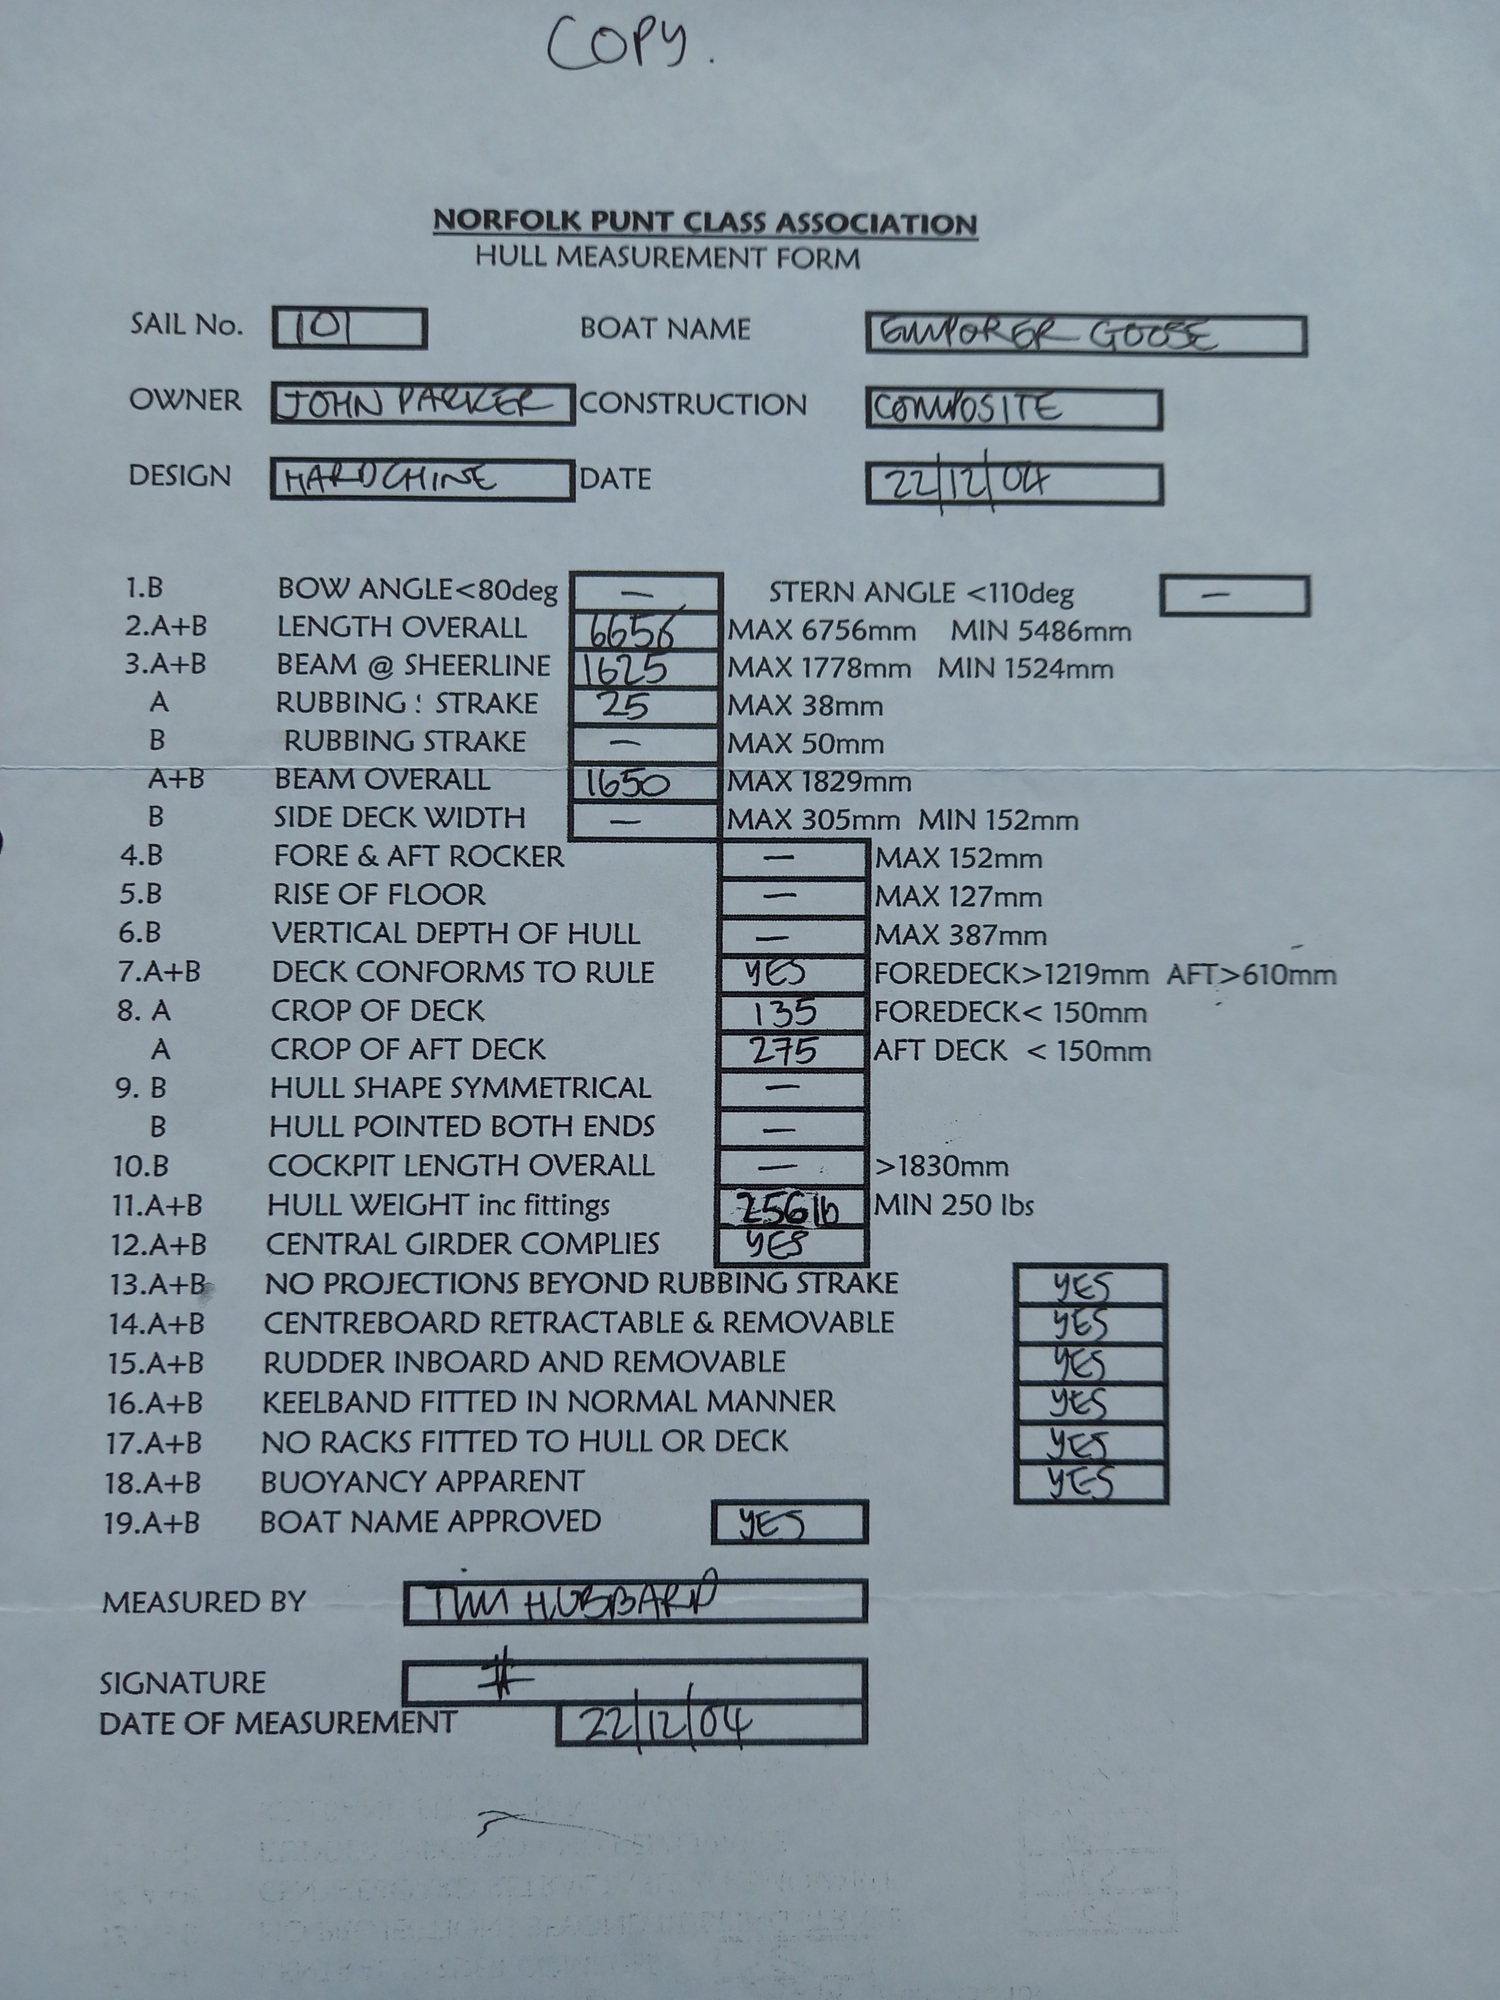 COPY.
NORFOLK PUNT CLASS ASSOCIATION
HULL MEASUREMENT FORM
SAIL No. 101 BOAT NAME EMPORER GOOSE
OWNER JOHN PARKER CONSTRUCTION COMPOSITE
DESIGN HARDCHINE DATE 22/12/04
1.B BOW ANGLE<80deg — STERN ANGLE <110deg —
2.A+B LENGTH OVERALL 6656 MAX 6756mm MIN 5486mm
3.A+B BEAM @ SHEERLINE 1625 MAX 1778mm MIN 1524mm
A RUBBING : STRAKE 25 MAX 38mm
B RUBBING STRAKE — MAX 50mm
A+B BEAM OVERALL 1650 MAX 1829mm
B SIDE DECK WIDTH — MAX 305mm MIN 152mm
4.B FORE & AFT ROCKER — MAX 152mm
5.B RISE OF FLOOR — MAX 127mm
6.B VERTICAL DEPTH OF HULL — MAX 387mm
7.A+B DECK CONFORMS TO RULE YES FOREDECK>1219mm AFT>610mm
8. A CROP OF DECK 135 FOREDECK< 150mm
A CROP OF AFT DECK 275 AFT DECK < 150mm
9. B HULL SHAPE SYMMETRICAL —
B HULL POINTED BOTH ENDS —
10.B COCKPIT LENGTH OVERALL — >1830mm
11.A+B HULL WEIGHT inc fittings 256lb MIN 250 lbs
12.A+B CENTRAL GIRDER COMPLIES YES
13.A+B NO PROJECTIONS BEYOND RUBBING STRAKE YES
14.A+B CENTREBOARD RETRACTABLE & REMOVABLE YES
15.A+B RUDDER INBOARD AND REMOVABLE YES
16.A+B KEELBAND FITTED IN NORMAL MANNER YES
17.A+B NO RACKS FITTED TO HULL OR DECK YES
18.A+B BUOYANCY APPARENT YES
19.A+B BOAT NAME APPROVED YES
MEASURED BY TIM HUBBARD
SIGNATURE
DATE OF MEASUREMENT 22/12/04